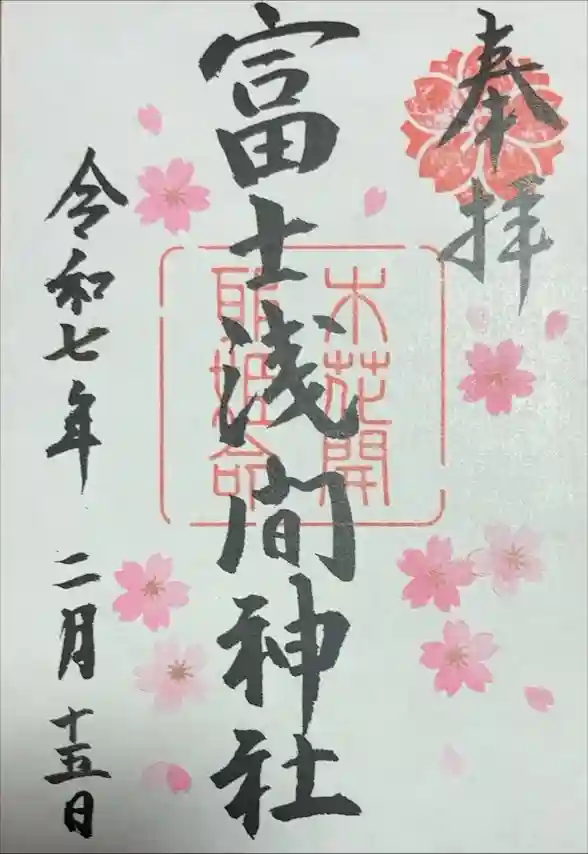 奉拝
富士浅間神社
木花開
耶姫命
令和七年 二月十五日